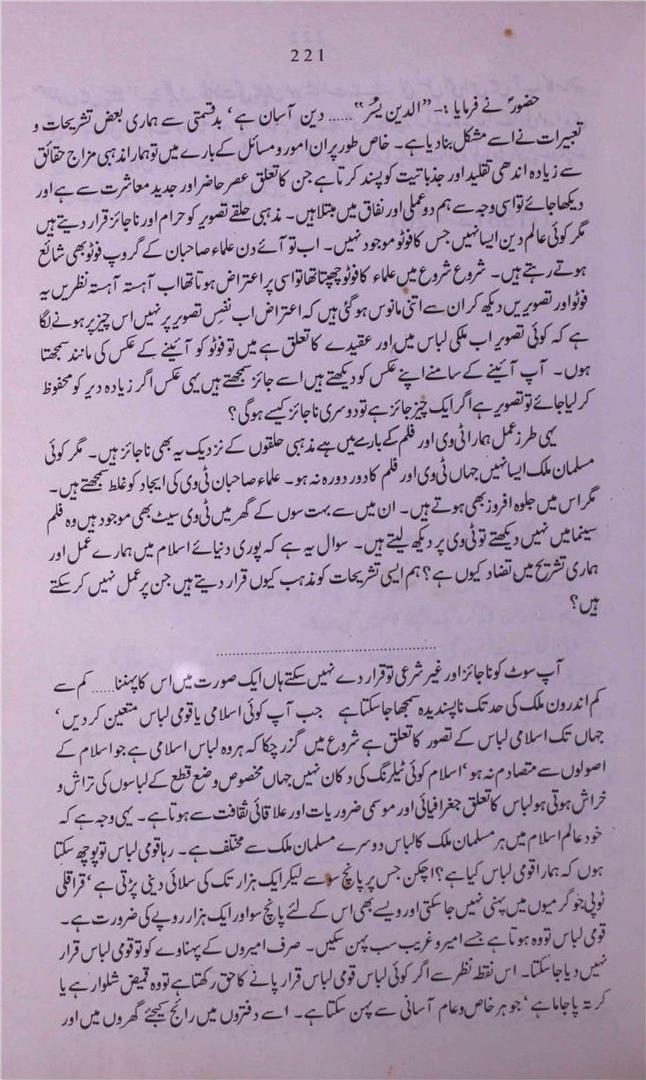 221
حضورؐ نے فرمایا :۔ ”الدین یسُر“ ...... دین آسان ہے، بد قسمتی سے ہماری بعض تشریحات و
تعبیرات نے اسے مشکل بنا دیا ہے۔ خاص طور پر ان امور و مسائل کے بارے میں تو ہمارا مذہبی مزاج حقائق
سے زیادہ اندھی تقلید اور جذباتیت کو پسند کرتا ہے جن کا تعلق عصر حاضر اور جدید معاشرت سے ہے اور
دیکھا جائے تو اسی وجہ سے ہم دو عملی اور نفاق میں مبتلا ہیں۔ مذہبی حلقے تصویر کو حرام اور ناجائز قرار دیتے ہیں
مگر کوئی عالم دین ایسا نہیں جس کا فوٹو موجود نہیں۔ اب تو آئے دن علماء صاحبان کے گروپ فوٹو بھی شائع
ہوتے رہتے ہیں۔ شروع شروع میں علماء کا فوٹو چھپتا تھا تو اسی پر اعتراض ہوتا تھا اب آہستہ آہستہ نظریں یہ
فوٹو اور تصویریں دیکھ کر ان سے اتنی مانوس ہو گئی ہیں کہ اعتراض اب نفسِ تصویر پر نہیں اس چیز پر ہونے لگا
ہے کہ کوئی تصویر اب ملکی لباس میں اور عقیدے کا تعلق ہے میں تو فوٹو کو آئینے کے عکس کی مانند سمجھتا
ہوں۔ آپ آئینے کے سامنے اپنے عکس کو دیکھتے ہیں اسے جائز سمجھتے ہیں یہی عکس اگر زیادہ دیر کو محفوظ
کر لیا جائے تو تصویر ہے اگر ایک چیز جائز ہے تو دوسری ناجائز کیسے ہو گی؟
یہی طرز عمل ہمارا ٹی وی اور فلم کے بارے میں ہے مذہبی حلقوں کے نزدیک یہ بھی ناجائز ہیں۔ مگر کوئی
مسلمان ملک ایسا نہیں جہاں ٹی وی اور فلم کا دور دورہ نہ ہو۔ علماء صاحبان ٹی وی کی ایجاد کو غلط سمجھتے ہیں۔
مگر اس میں جلوہ افروز بھی ہوتے ہیں۔ ان میں سے بہت سوں کے گھر میں ٹی وی سیٹ بھی موجود ہیں وہ فلم
سینما میں نہیں دیکھتے تو ٹی وی پر دیکھ لیتے ہیں۔ سوال یہ ہے کہ پوری دنیائے اسلام میں ہمارے عمل اور
ہماری تشریح میں تضاد کیوں ہے؟ ہم ایسی تشریحات کو مذہب کیوں قرار دیتے ہیں جن پر عمل نہیں کر سکتے
ہیں؟
..........................................
آپ سوٹ کو ناجائز اور غیر شرعی تو قرار دے نہیں سکتے ہاں ایک صورت میں اس کا پہننا ...... کم سے
کم اندرون ملک کی حد تک ناپسندیدہ سمجھا جا سکتا ہے جب آپ کوئی اسلامی یا قومی لباس متعین کر دیں،
جہاں تک اسلامی لباس کے تصور کا تعلق ہے شروع میں گزر چکا کہ ہر وہ لباس اسلامی ہے جو اسلام کے
اصولوں سے متصادم نہ ہو، اسلام کوئی ٹیلرنگ کی دکان نہیں جہاں مخصوص وضع قطع کے لباسوں کی تراش و
خراش ہوتی ہو لباس کا تعلق جغرافیائی اور موسمی ضروریات اور علاقائی ثقافت سے ہوتا ہے۔ یہی وجہ ہے کہ
خود عالم اسلام میں ہر مسلمان ملک کا لباس دوسرے مسلمان ملک سے مختلف ہے۔ رہا قومی لباس تو پوچھ سکتا
ہوں کہ ہمارا قومی لباس کیا ہے؟ اچکن جس پر پانچ سو سے لیکر ایک ہزار تک کی سلائی دینی پڑتی ہے، قراقلی
ٹوپی جو گرمیوں میں پہنی نہیں جا سکتی اور ویسے بھی اس کے لئے پانچ سو اور ایک ہزار روپے کی ضرورت ہے۔
قومی لباس تو وہ ہوتا ہے جسے امیر و غریب سب پہن سکیں۔ صرف امیروں کے پہناوے کو تو قومی لباس قرار
نہیں دیا جا سکتا۔ اس نقطہ نظر سے اگر کوئی لباس قومی لباس قرار پانے کا حق رکھتا ہے تو وہ قمیض شلوار ہے یا
کرتہ پاجاما ہے، جو ہر خاص و عام آسانی سے پہن سکتا ہے۔ اسے دفتروں میں رائج کیجئے گھروں میں اور